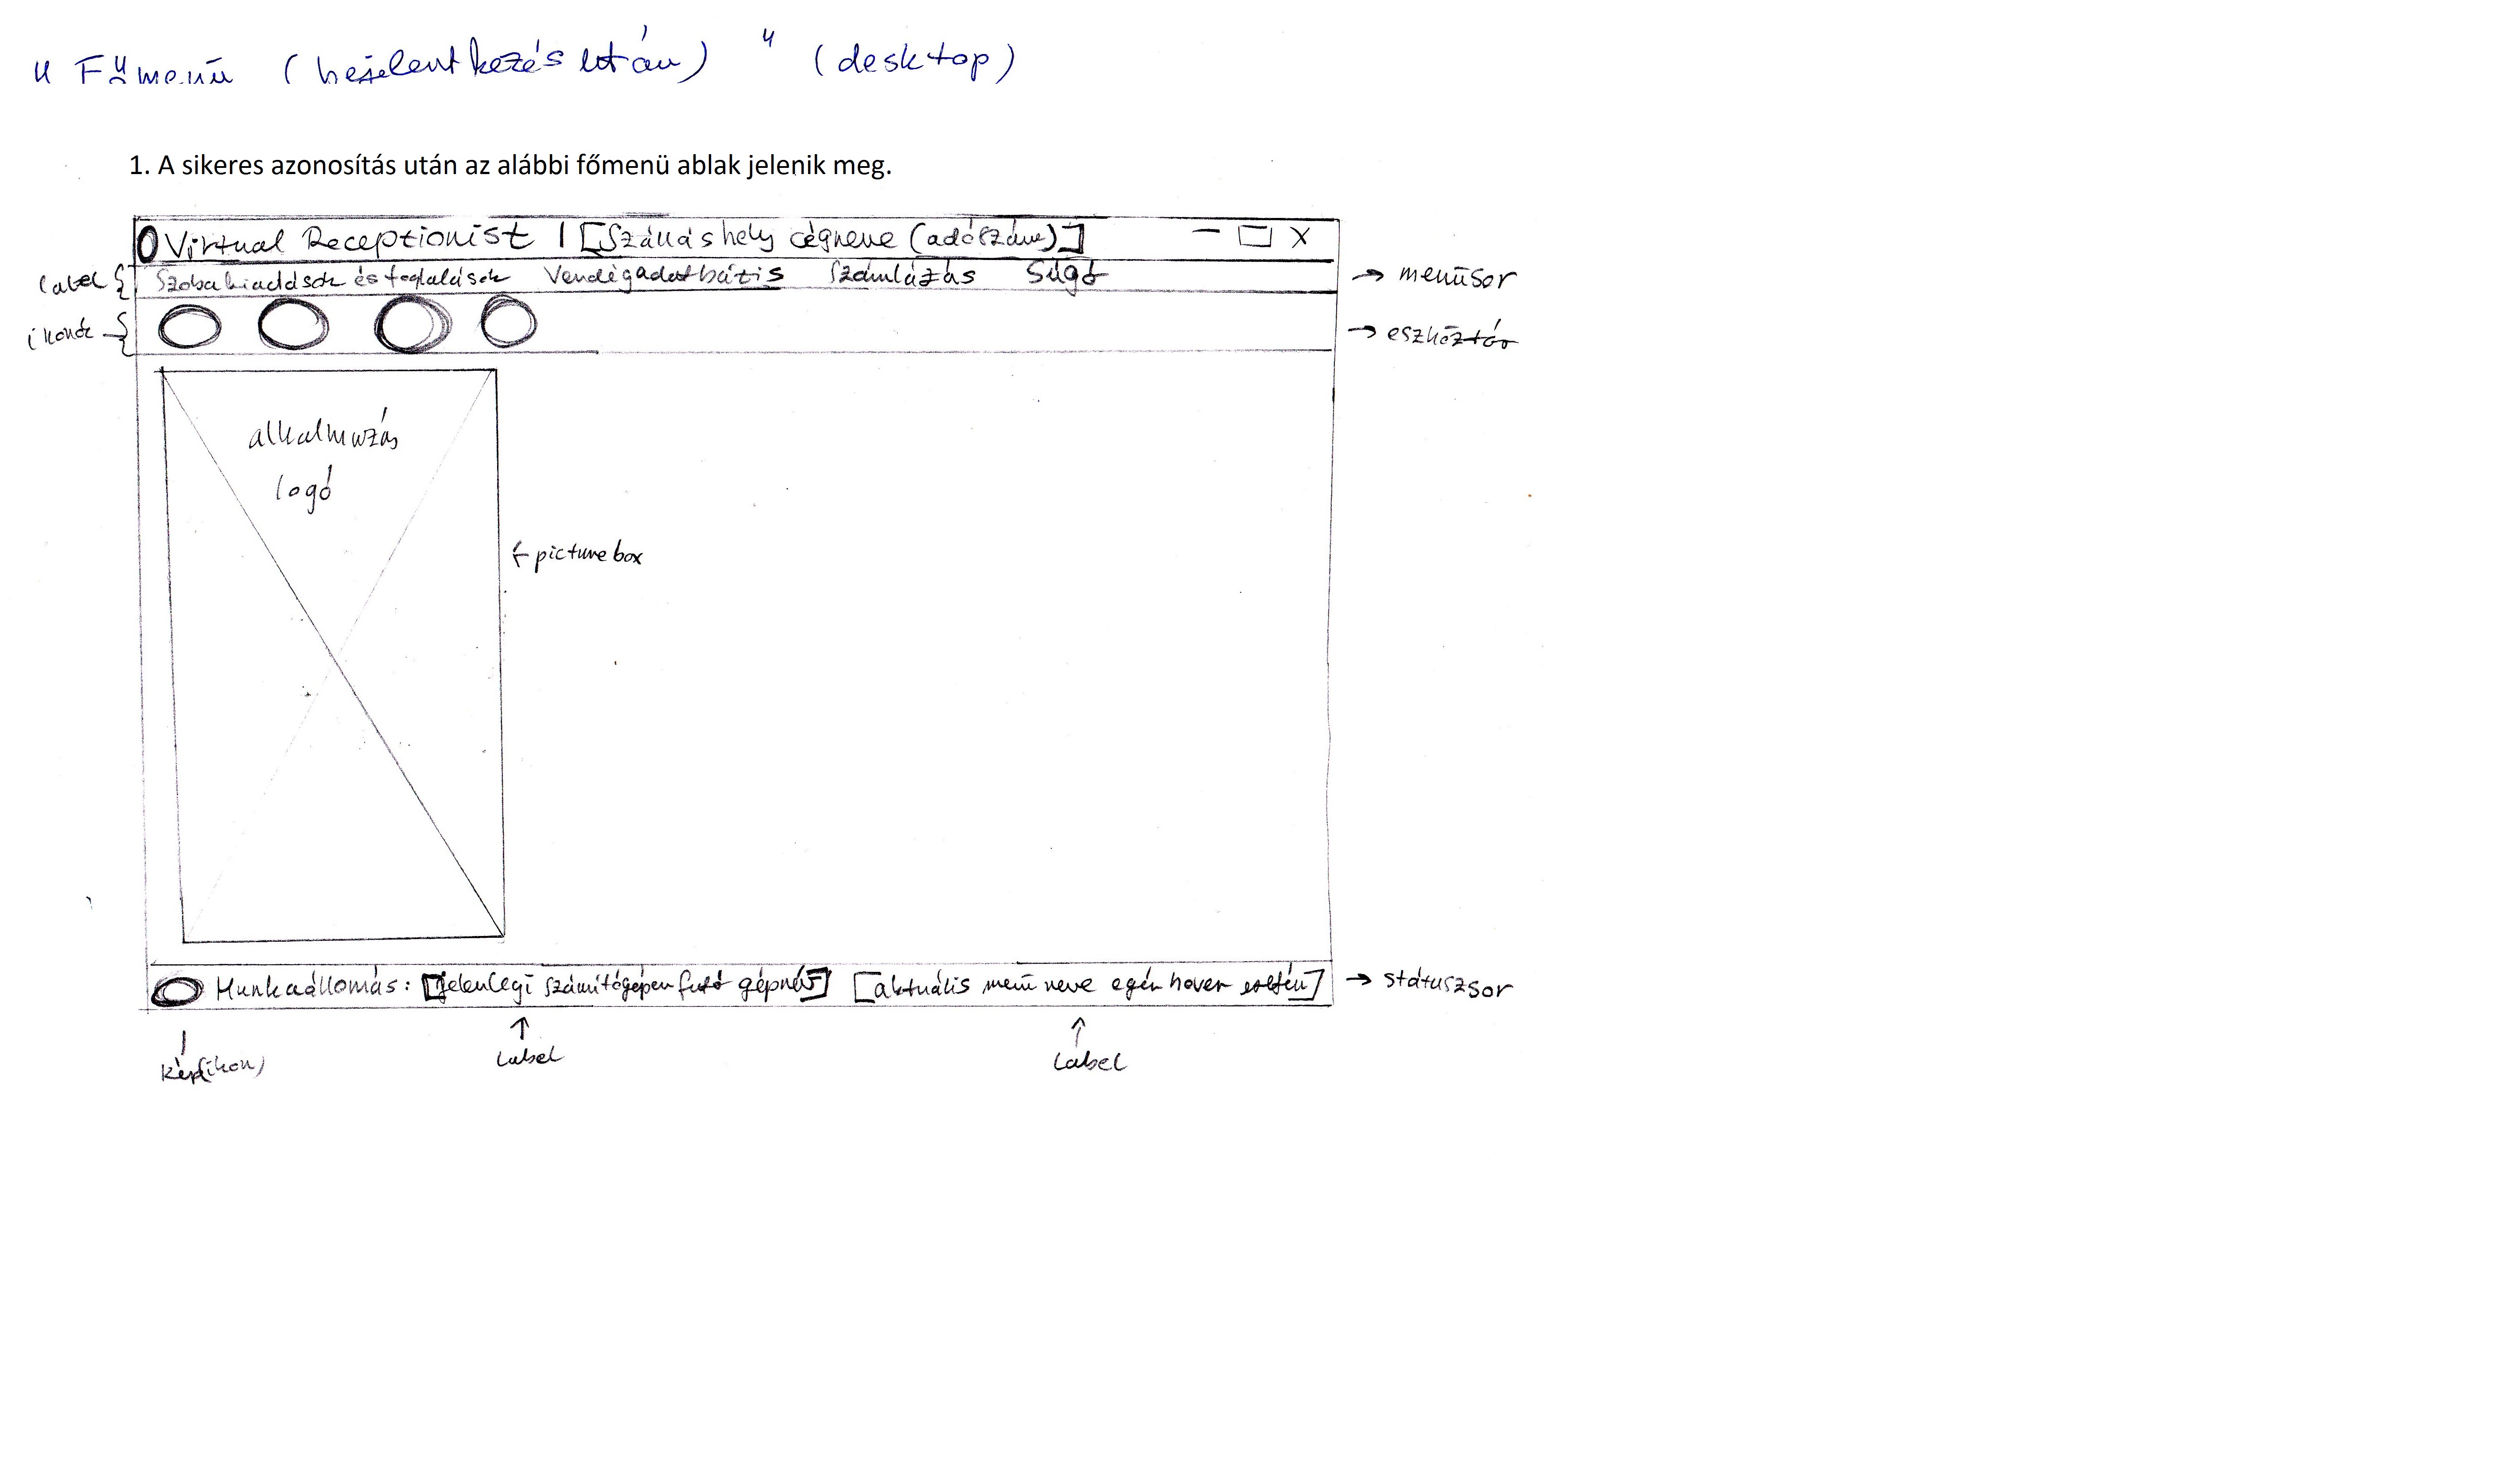 "Főmenü (bejelentkezés után)" (desktop)
1. A sikeres azonosítás után az alábbi főmenü ablak jelenik meg.
Virtual Receptionist | [Szálláshely cégneve (adószáma)] – X
label { Szobakiadások és foglalások Vendégadatbázis Számlázás Súgó → menüsor
ikonok → eszköztár
alkalmazás
logó
← picture box
Munkaállomás: [jelenlegi számítógépen futó gépnév] [aktuális menü neve egér hover esetén] → státuszsor
kép(ikon)
Label
Label